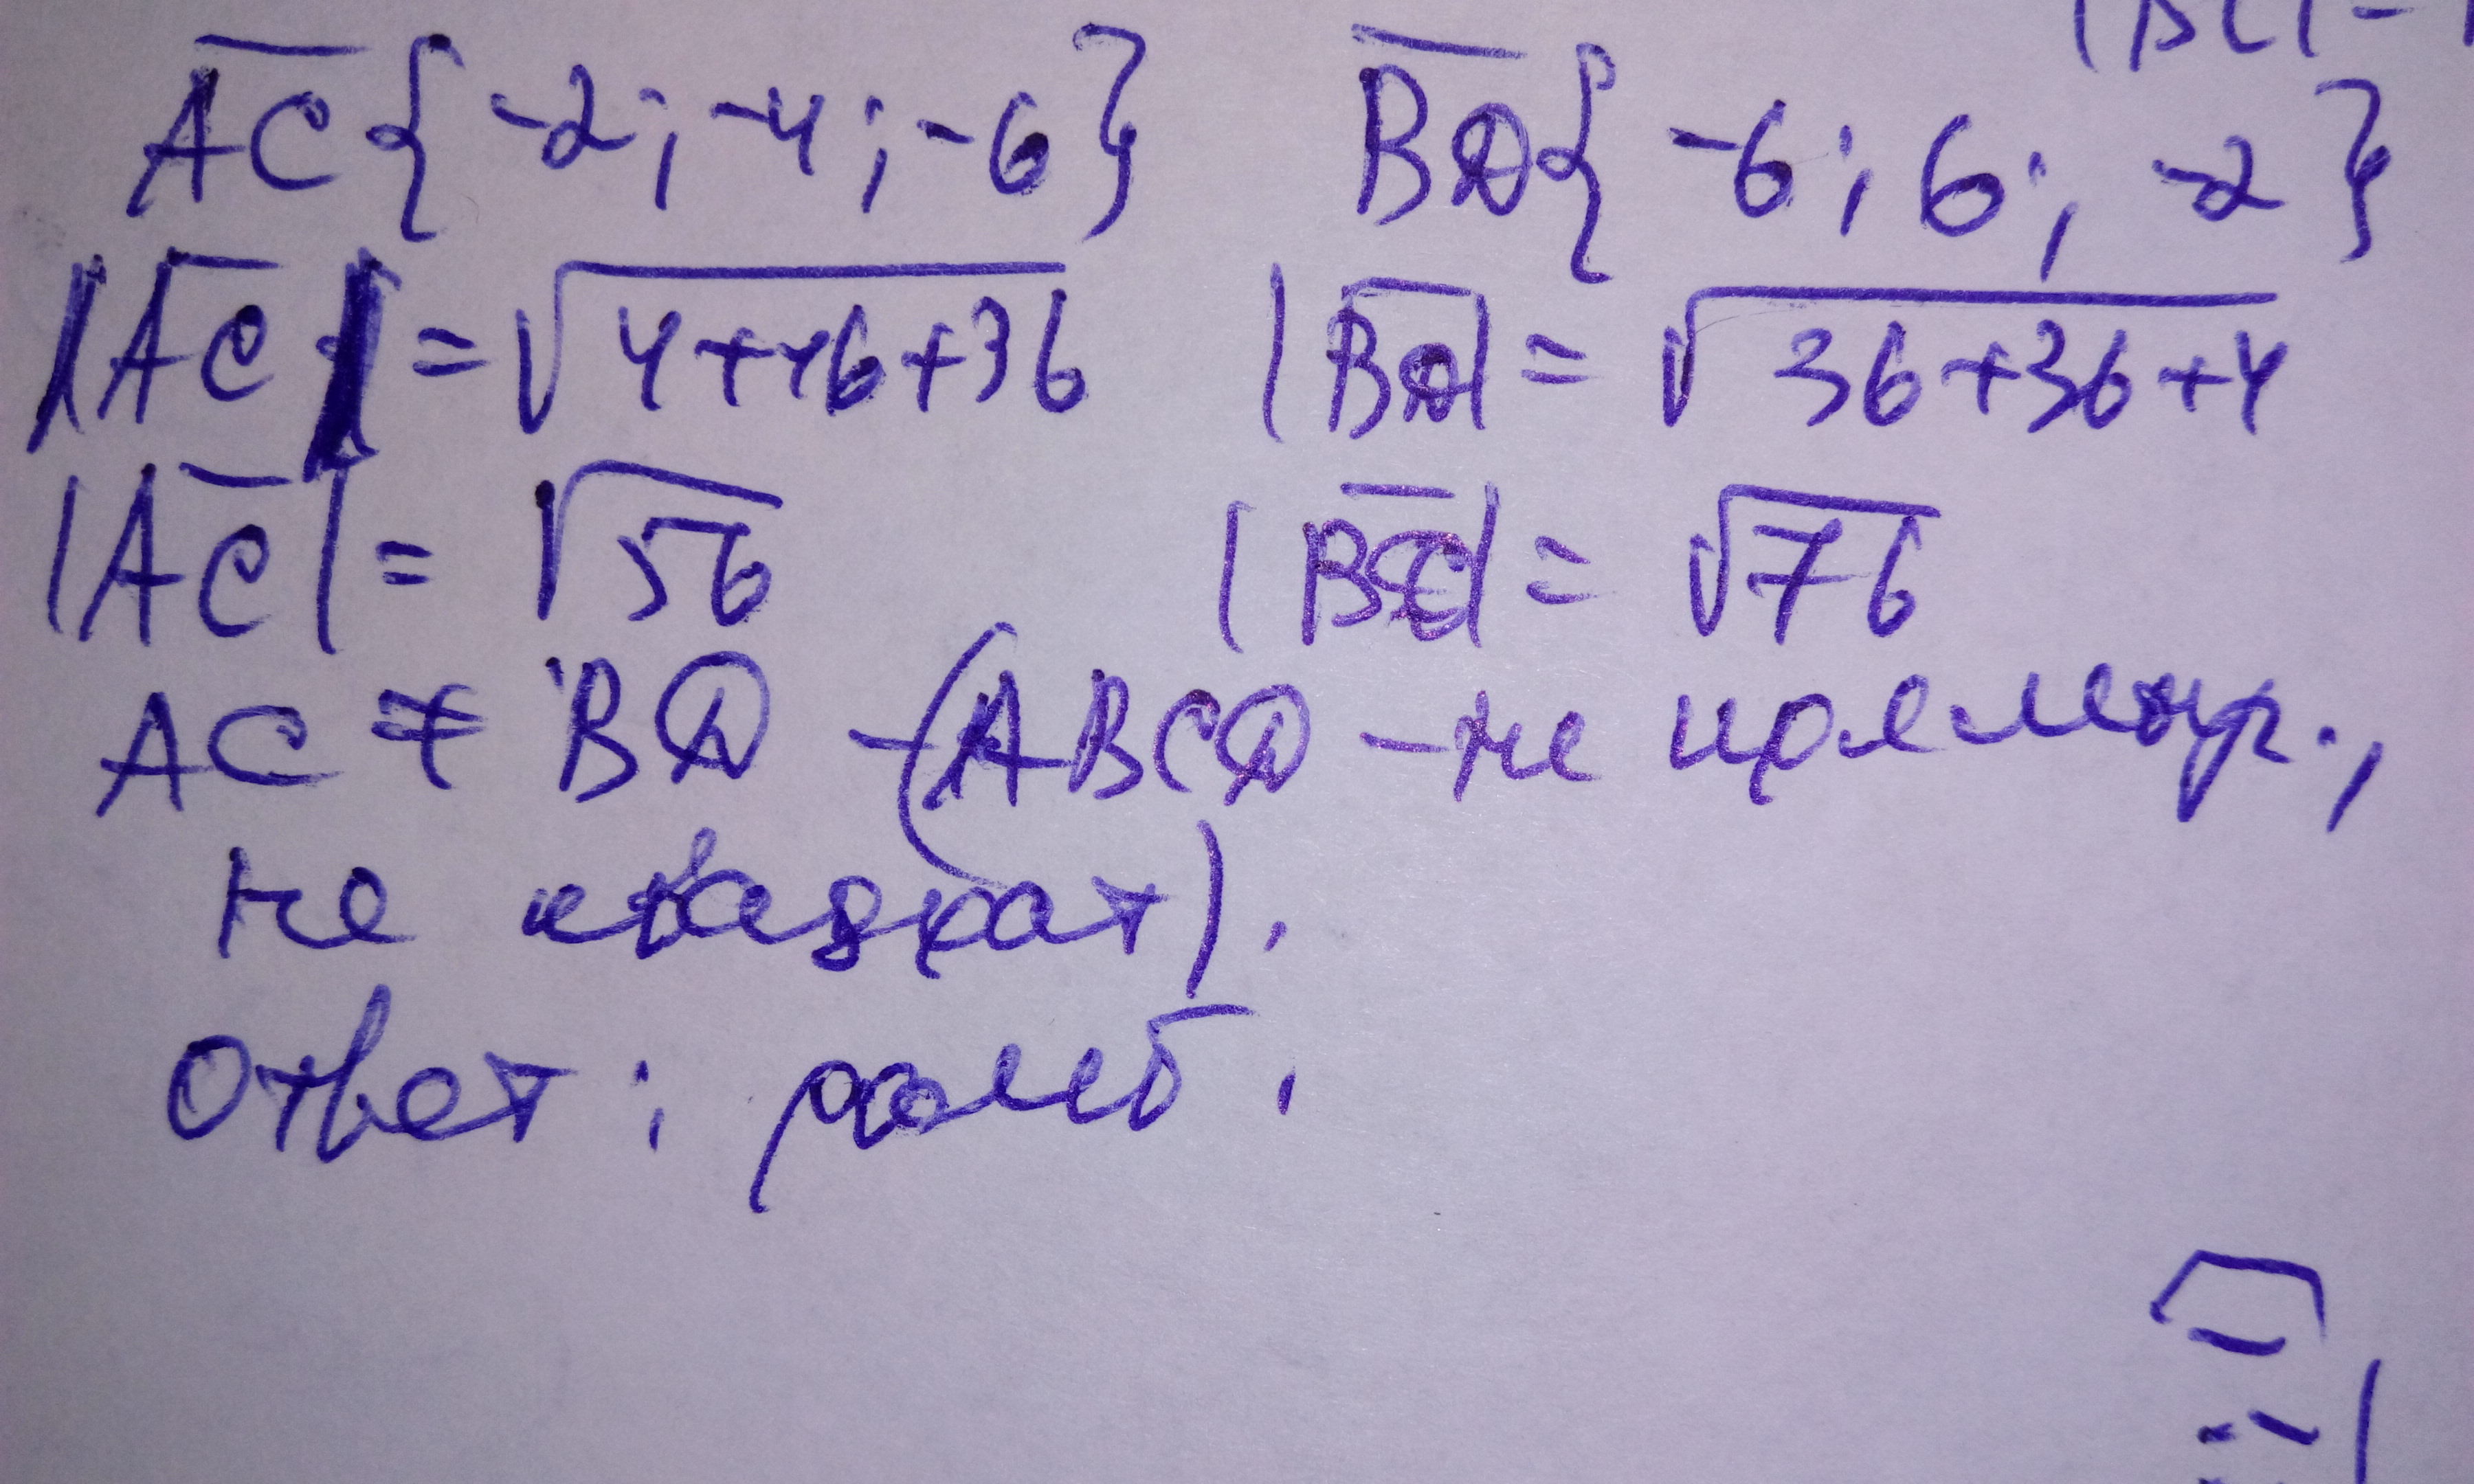 |BC| =
AC{-2; -4; -6} BD{-6; 6; -2}
|AC| = √4+16+36 |BD| = √36+36+4
|AC| = √56 |BD| = √76
AC ≠ BD - (ABCD - не прямоуг.,
не квадрат).
Ответ: ромб.